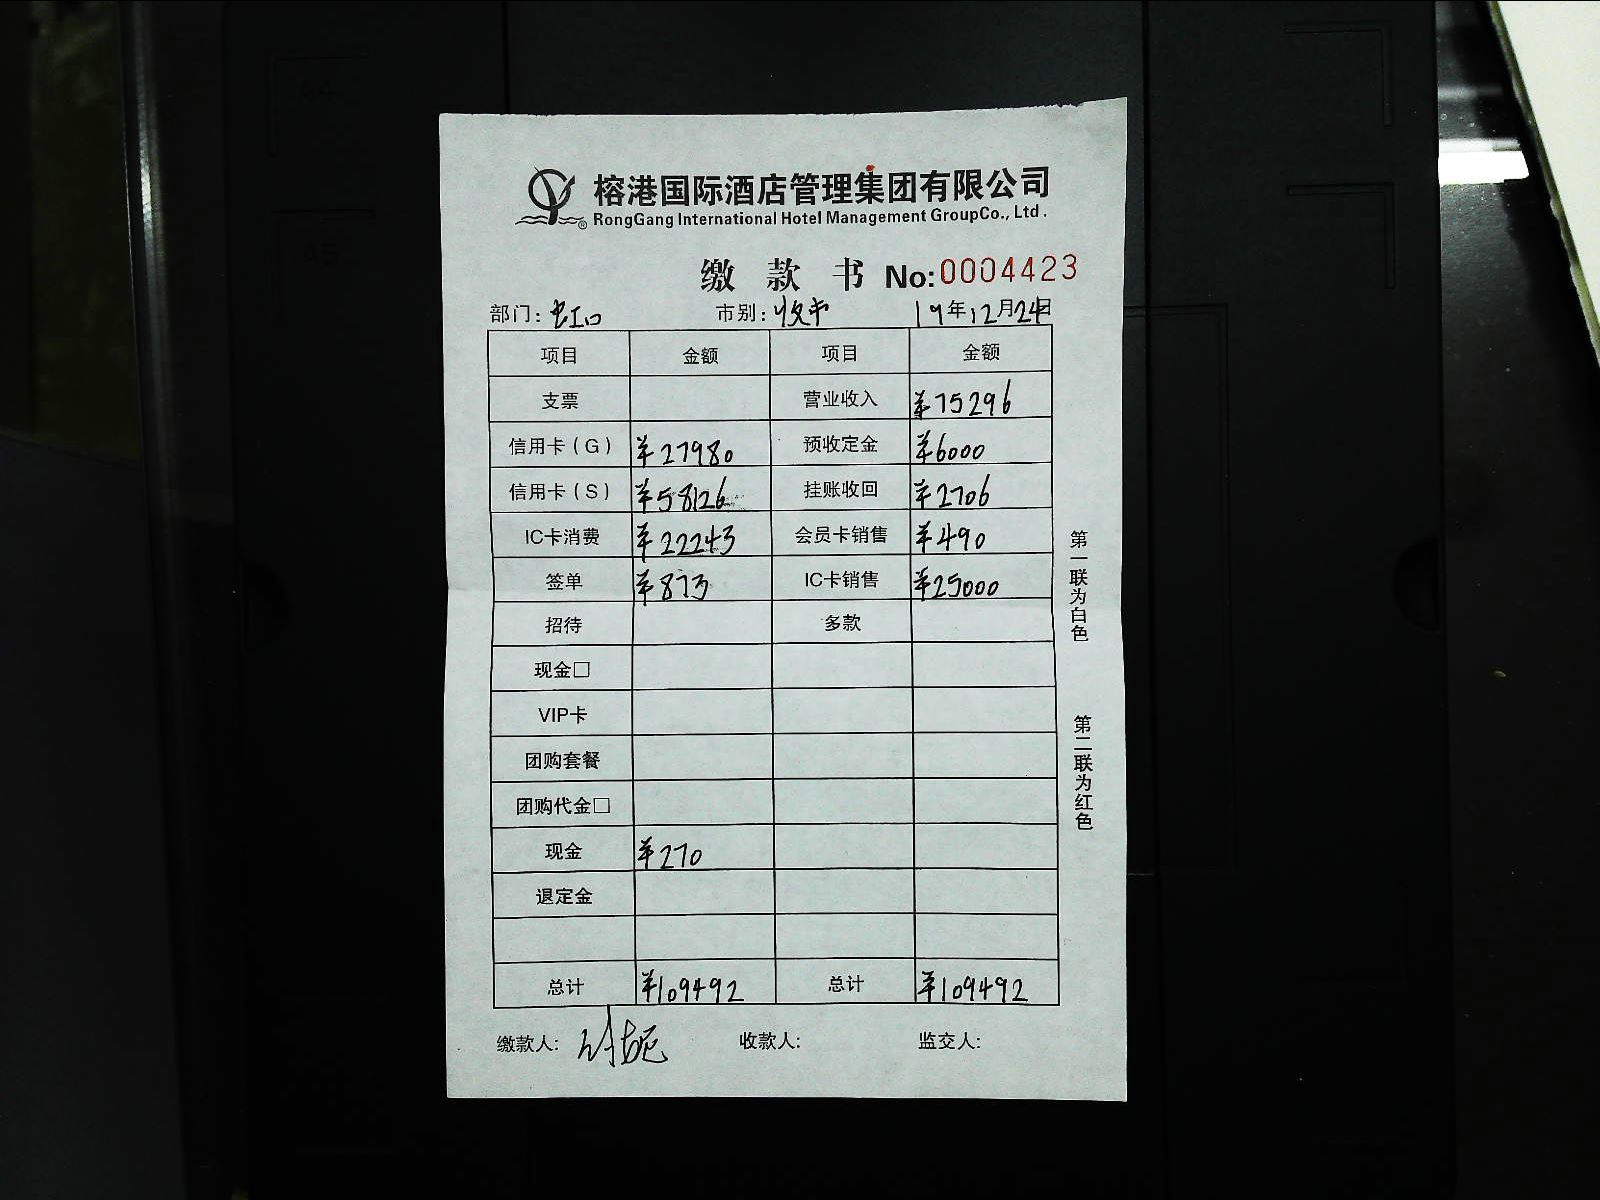 榕港国际酒店管理集团有限公司
RongGang International Hotel Management GroupCo., Ltd.
缴 款 书 No:0004423
部门: 虹口 市别: 收市 19年12月24日
项目 金额 项目 金额
支票 营业收入 ¥75296
信用卡(G) ¥27980 预收定金 ¥6000
信用卡(S) ¥58126 挂账收回 ¥2706
IC卡消费 ¥22243 会员卡销售 ¥490
签单 ¥873 IC卡销售 ¥25000
招待 多款
现金□
VIP卡
团购套餐
团购代金□
现金 ¥270
退定金
总计 ¥109492 总计 ¥109492
缴款人: 收款人: 监交人:
第一联为白色
第二联为红色